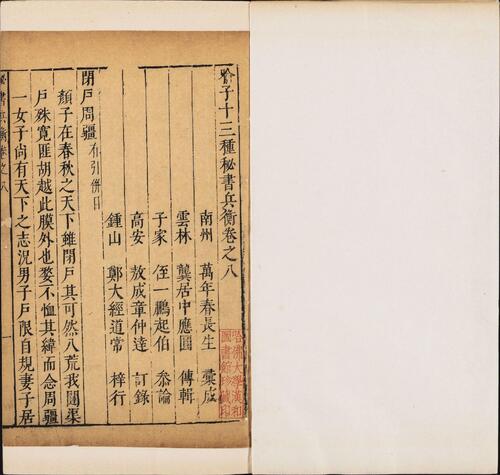 喻子十三種秘書兵衡卷之八
南州 萬年春長生 彙成
雲林 龔居中應圓 傳輯
子家 侄一鵬起伯 叅論
高安 敖成章仲達 訂錄
鍾山 鄭大經道常 梓行
閉戶周疆 有引併目
顏子在春秋之天下雖閉戶其可然八荒我闥渠
戶殊寬匪胡越此膜外也嫠不恤其緯而念周疆
一女子尚有天下之志況男子戶限自規妻子居
秘書兵衡卷之八
一
哈佛大學漢和
圖書館珍藏印